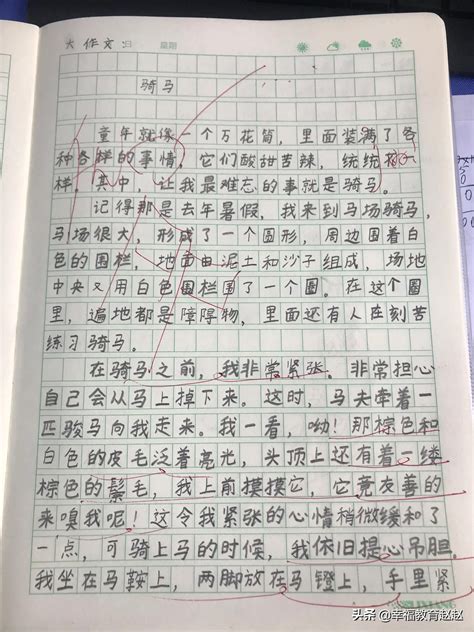 大作文:
星期
骑马
童年就像一个万花筒，里面装满了各
种各样的事情。它们酸甜苦辣，统统
样。其中，让我最难忘的事就是骑马。
记得那是去年暑假，我来到马场骑马，
马场很大，形成了一个圆形，周边围着白
色的围栏，地面由泥土和沙子组成，场地
中央又用白色围栏围了一个圈。在这个圈
里，遍地都是障碍物，里面还有人在刻苦
练习骑马。
在骑马之前，我非常紧张。非常担心
自己会从马上掉下来。这时，马夫牵着一
匹骏马向我走来。我一看，呦！那棕色和
白色的皮毛泛着亮光，头顶上还有着一缕
棕色的鬃毛，我上前摸摸它，它竟友善的
来嗅我呢！这令我紧张的心情稍微缓和了
一点，可骑上马的时候，我依旧提心吊胆。
我坐在马鞍上，两脚放在马镫上，手里紧
头条 @幸福教育赵赵